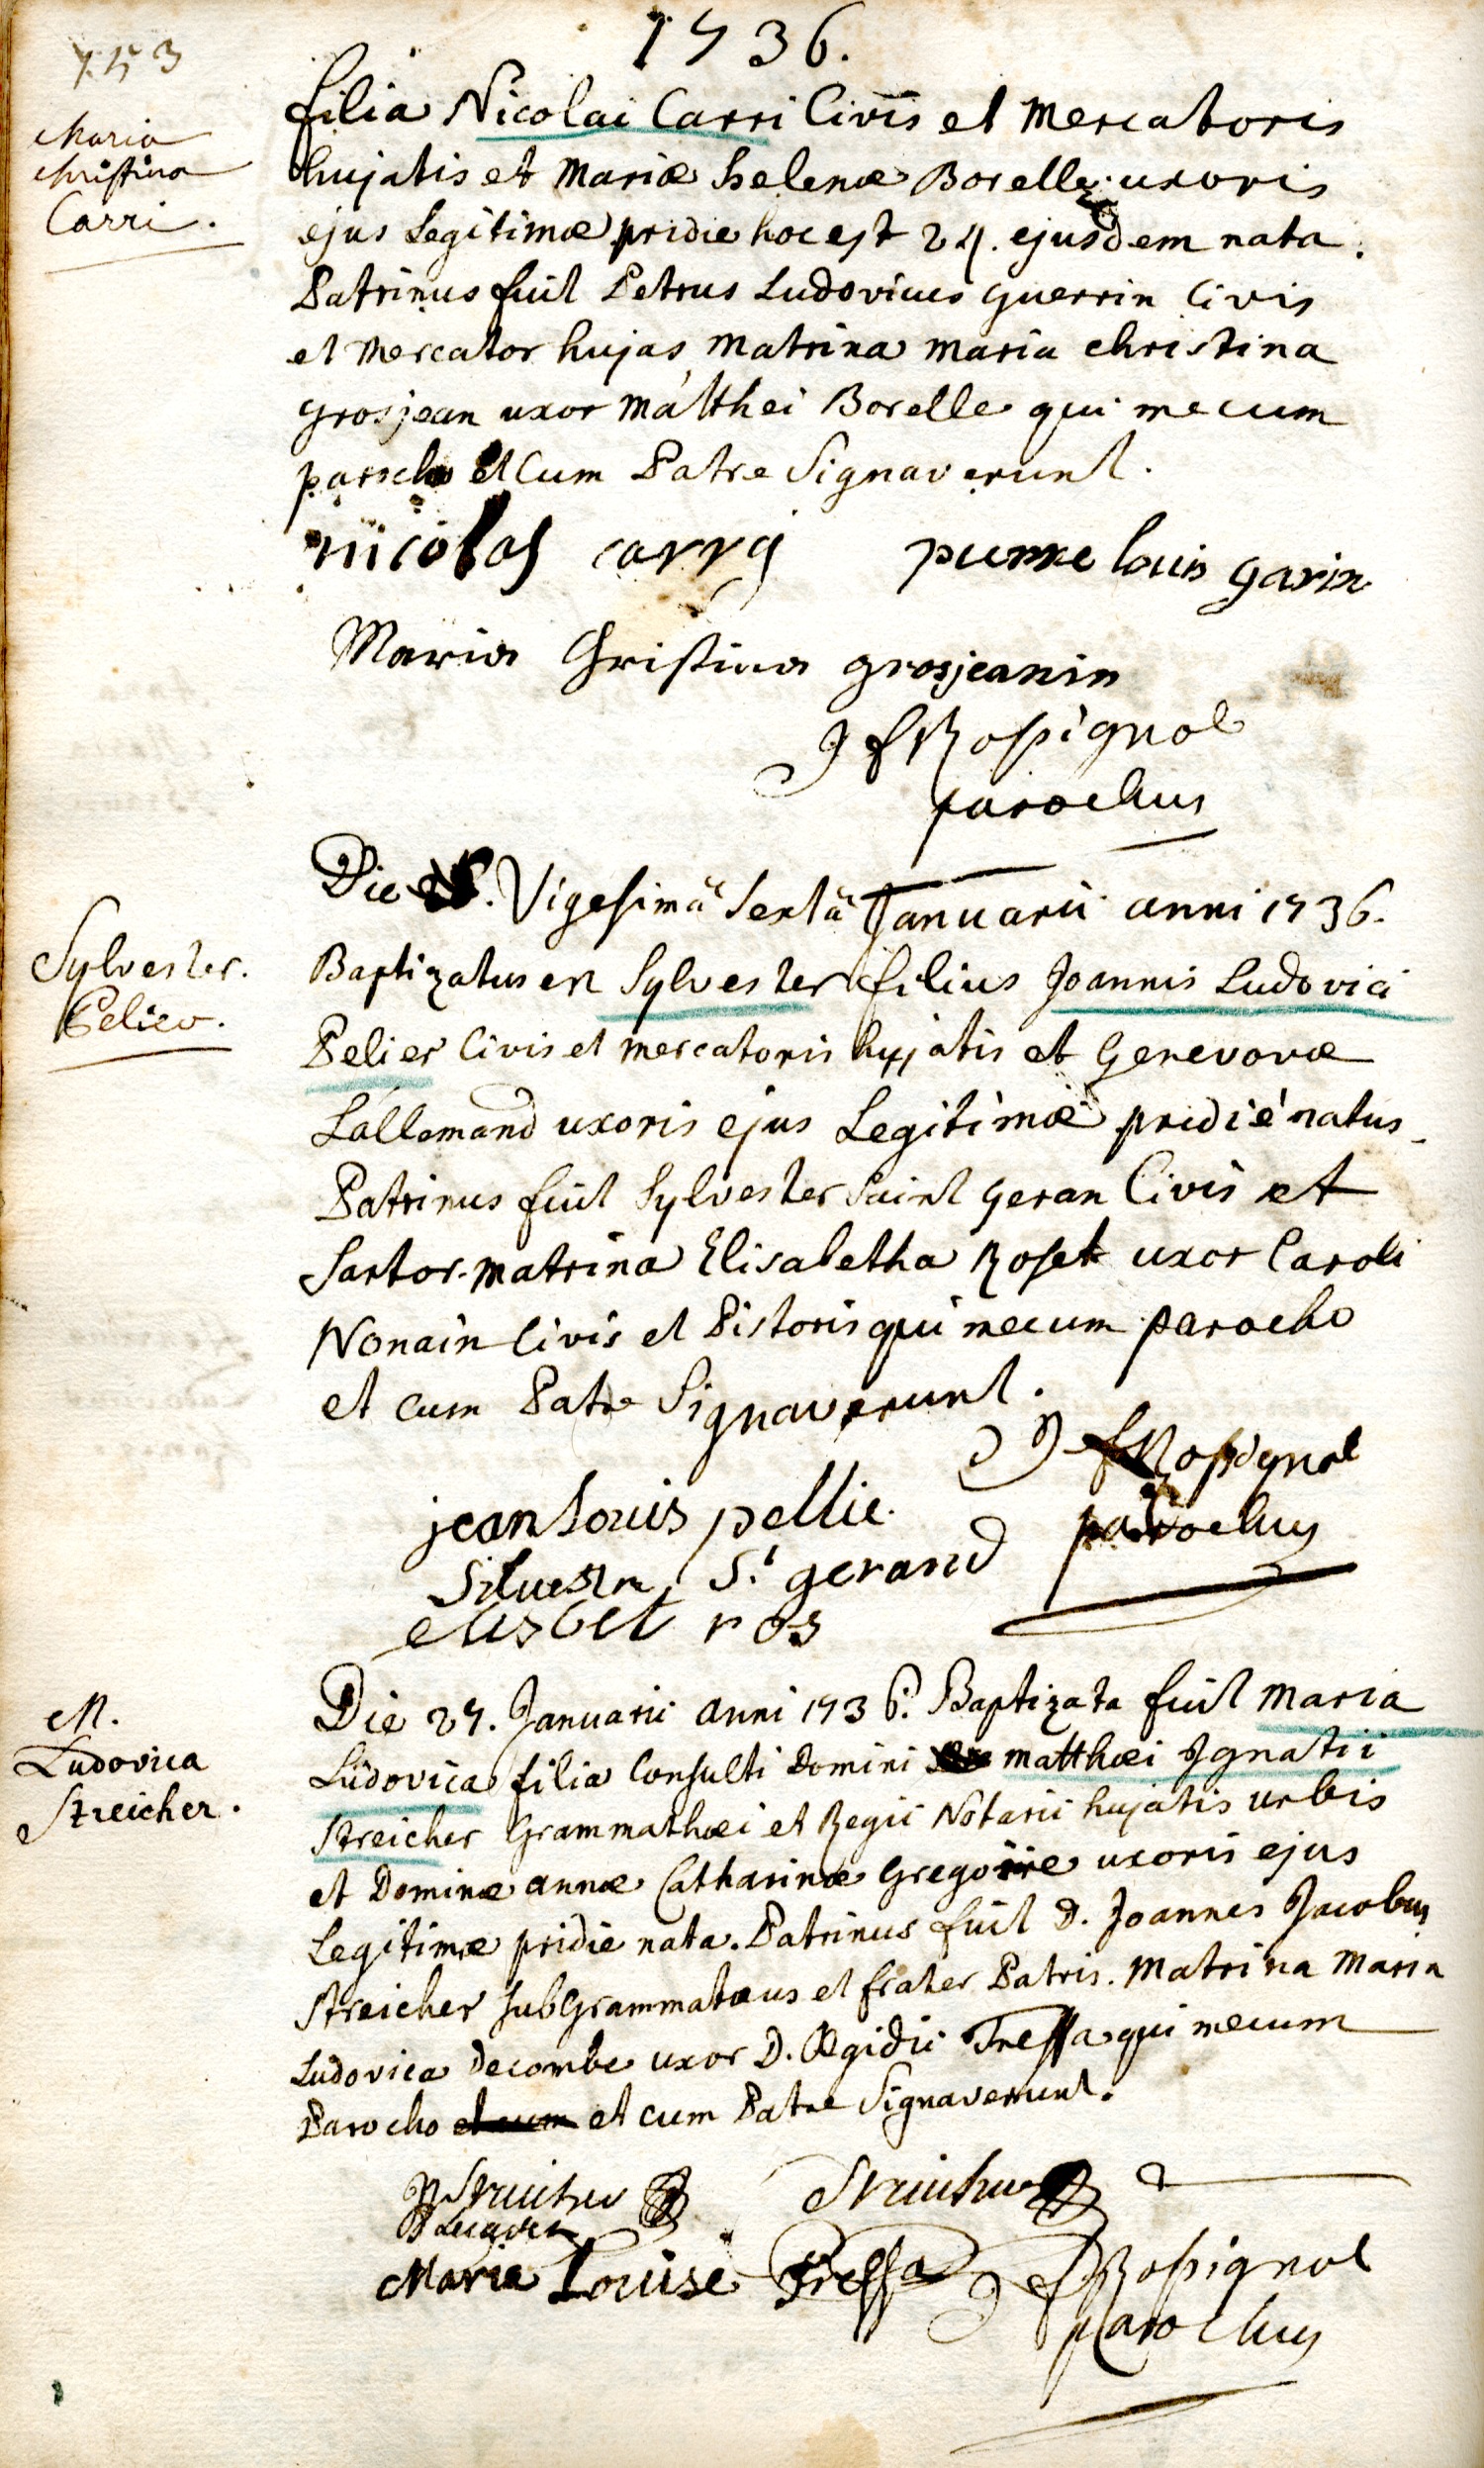 1736.
153
Maria
Christina
Carri.
filia Nicolai Carri Civis et Mercatoris
hujatis et Mariæ Helenæ Borelle uxoris
ejus Legitimæ pridie hoc est 24. ejusdem nata.
Patrinus fuit Petrus Ludovicus Guerrin Civis
et Mercator hujas, Matrina Maria Christina
Grosjean uxor Matthei Borelle qui mecum
parocho et Cum Patre Signaverunt.
nicolas carry pierre louis garin
Maria Christina grosjeanin
J f Rossignol
parochus
Sylvester.
Pelier.
Die Vigesimâ Sextâ Januarii anni 1736.
Baptizatus est Sylvester filius Joannis Ludovici
Pelier Civis et Mercatoris hujatis et Genevovæ
Lallemand uxoris ejus Legitimæ pridié natus.
Patrinus fuit Sylvester Saint Geran Civis et
Sartor. Matrina Elisabetha Roset uxor Caroli
Nonain Civis et Pistoris qui mecum parocho
et cum Patre Signaverunt.
J f Rossignol
jean Louis pellie. parochus
Silvestre St gerand
elisbet ros
M.
Ludovica
Streicher.
Die 27. Januarii anni 1736. Baptizata fuit Maria
Ludovica filia Consulti Domini Matthæi Ignatii
Streicher Grammathæi et Regii Notarii hujatis urbis
et Dominæ annæ Catharinæ Gregoire uxoris ejus
Legitimæ pridie nata. Patrinus fuit D. Joannes Jacobus
Streicher subGrammatæus et frater Patris. Matrina Maria
Ludovica Decombe uxor D. Ægidii Tressa qui mecum
Parocho et cum et cum Patre Signaverunt.
Streicher Streicher
Marie Louise Tressa J f Rossignol
parochus